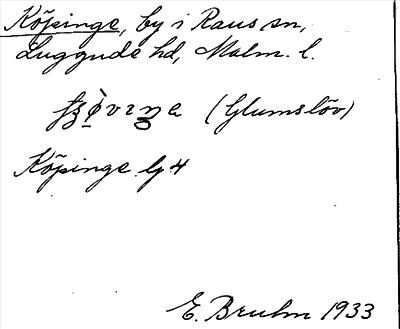 Köpinge, by i Raus sn,
Luggude hd, Malm. l.
(Glumslöv)
Köpinge lg 4
E. Bruhn 1933